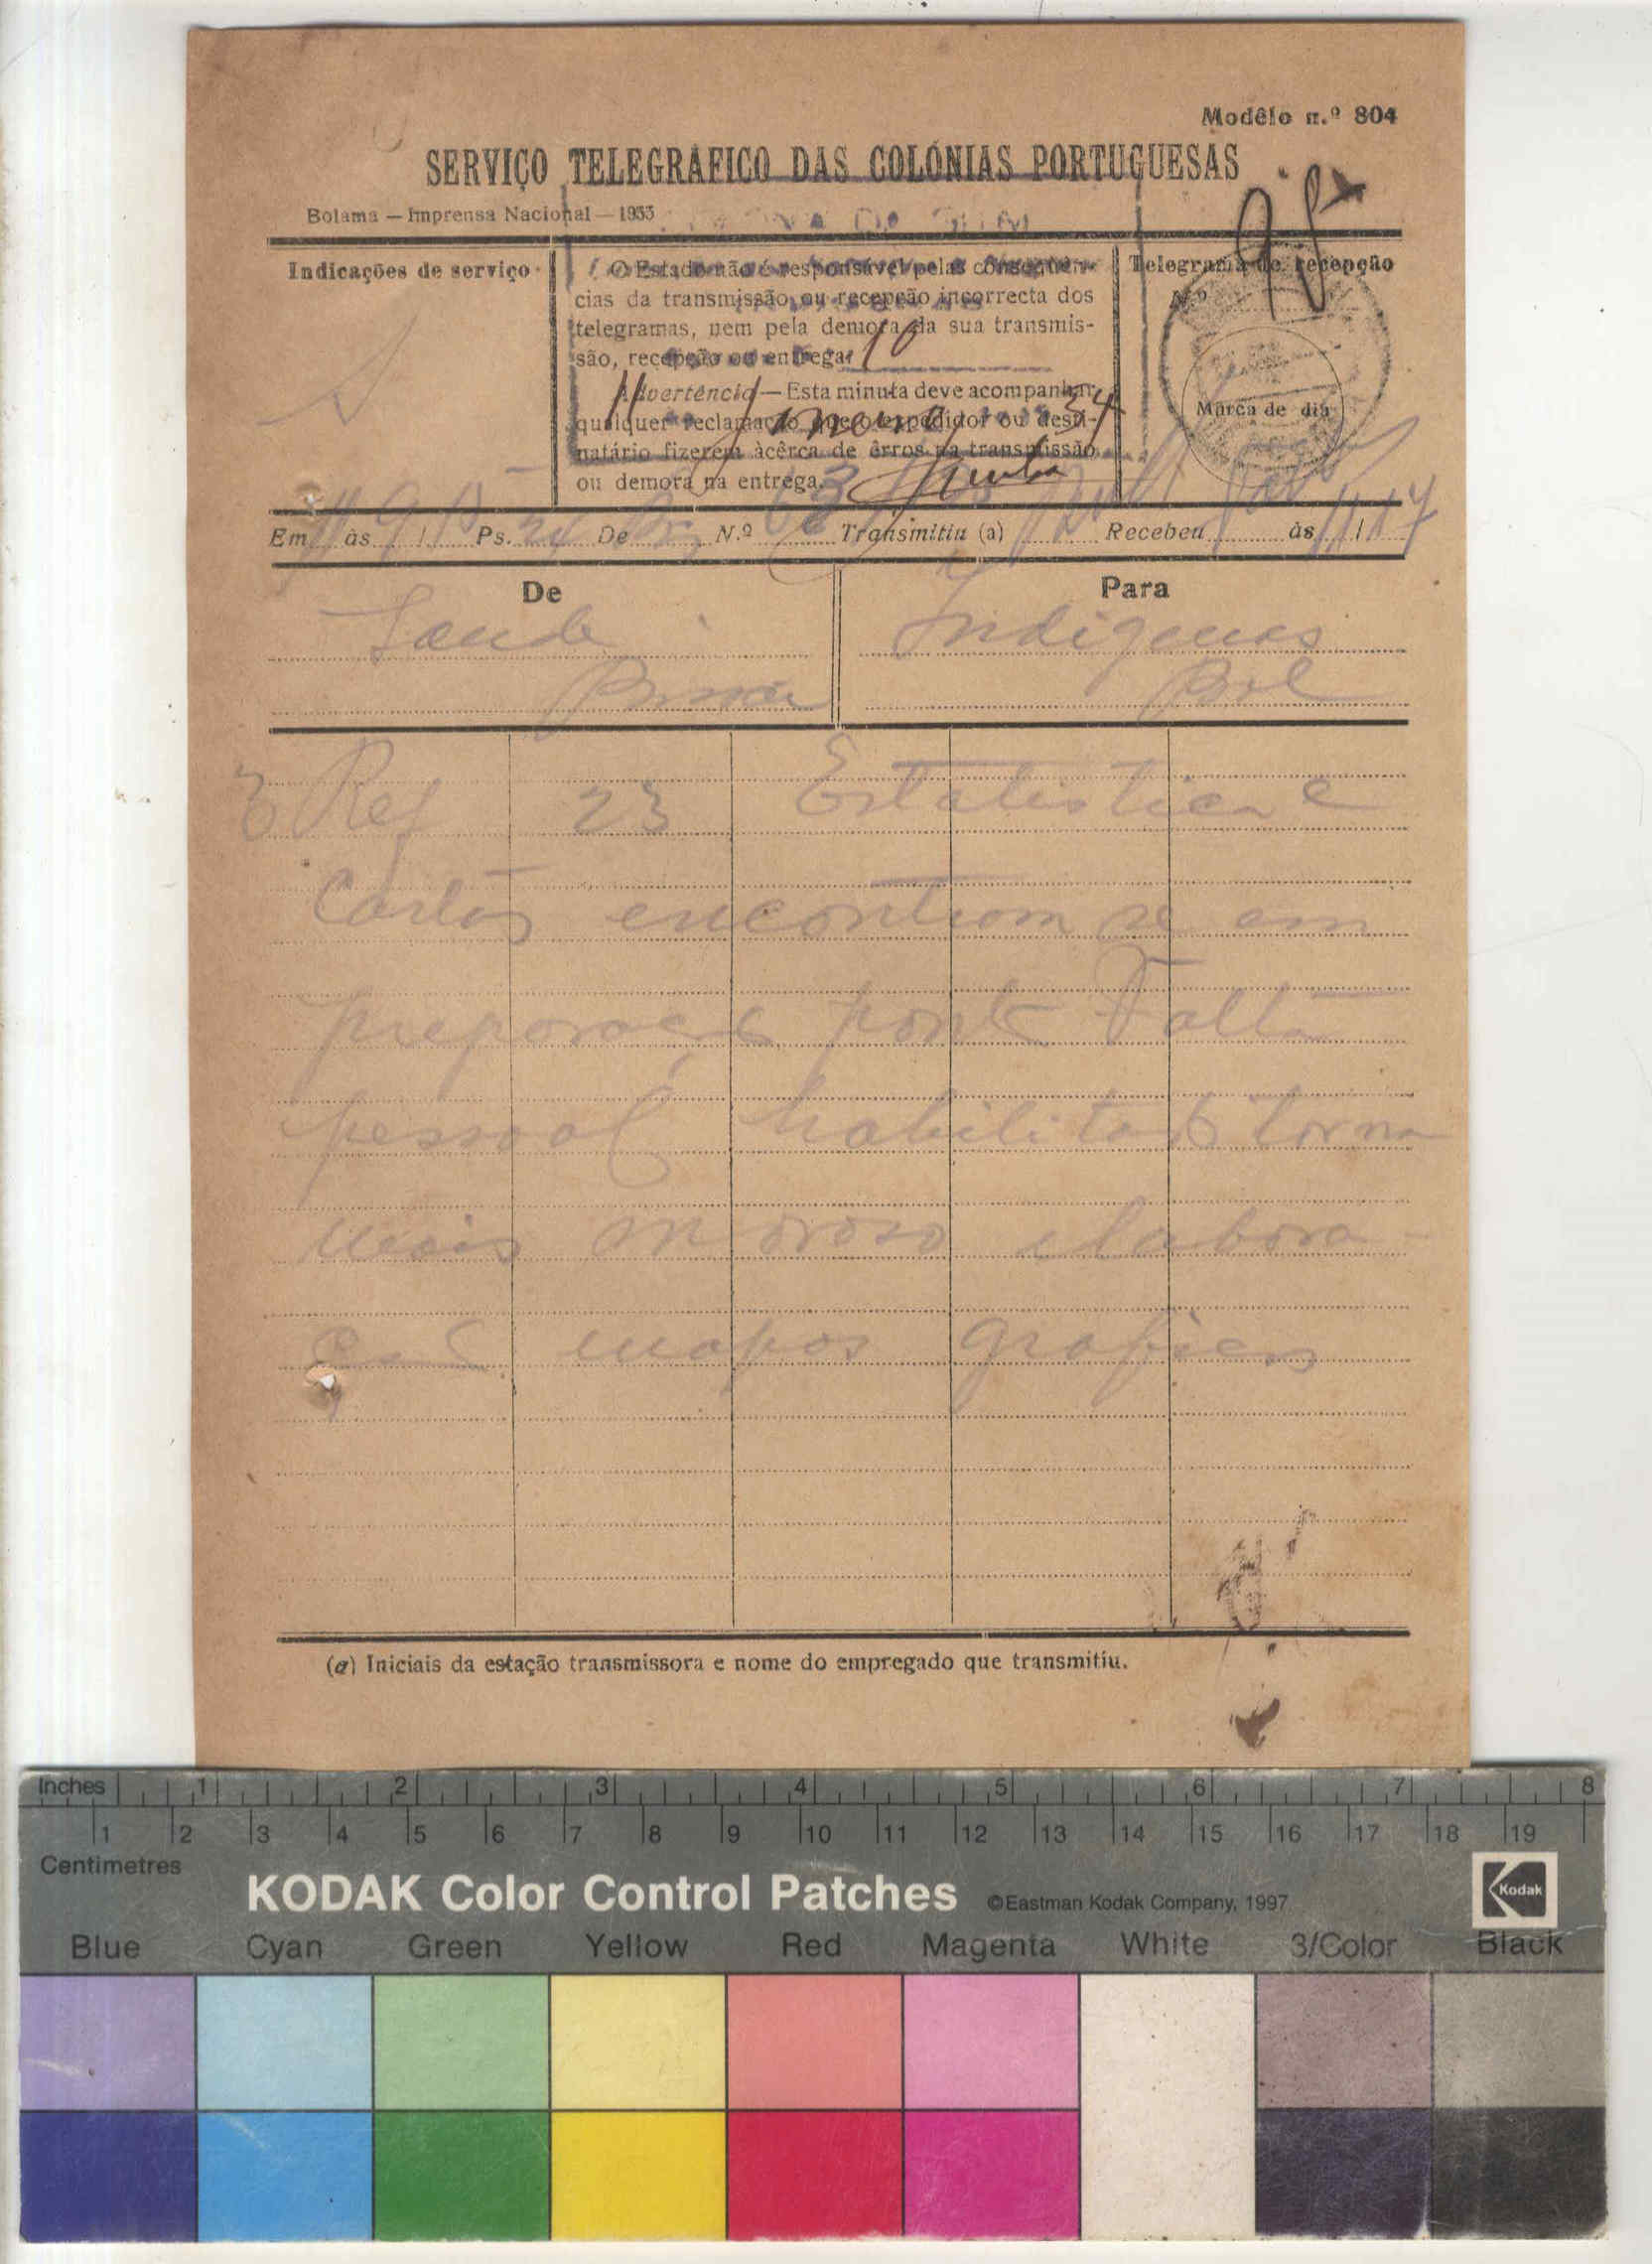 Modêlo n.º 804
SERVIÇO TELEGRÁFICO DAS COLÓNIAS PORTUGUESAS
Bolama — Imprensa Nacional — 1933
Indicações de serviço
O Estado não é responsável pelas consequên-
cias da transmissão ou recepção incorrecta dos
telegramas, nem pela demora da sua transmis-
são, recepção ou entrega.
Advertência — Esta minuta deve acompanhar
qualquer reclamação que o expedidor ou desti-
natário fizerem àcêrca de êrros na transmissão
ou demora na entrega.
Telegrama de recepção
N.º
Marca de dia
10
34
63
Em às / Ps. De N.º Transmitiu (a) Recebeu às /
De
Para
Saude
Indigenas
Bissau
Bol
Ref 23 Estatistica e
Cartas encontram se em
preparação ponto Falta
pessoal habilitado torna
mais moroso elabora-
ção mapas graficos
(a) Iniciais da estação transmissora e nome do empregado que transmitiu.
Inches 1 2 3 4 5 6 7 8
1 2 3 4 5 6 7 8 9 10 11 12 13 14 15 16 17 18 19
Centimetres
KODAK Color Control Patches ©Eastman Kodak Company, 1997
Kodak
Blue Cyan Green Yellow Red Magenta White 3/Color Black